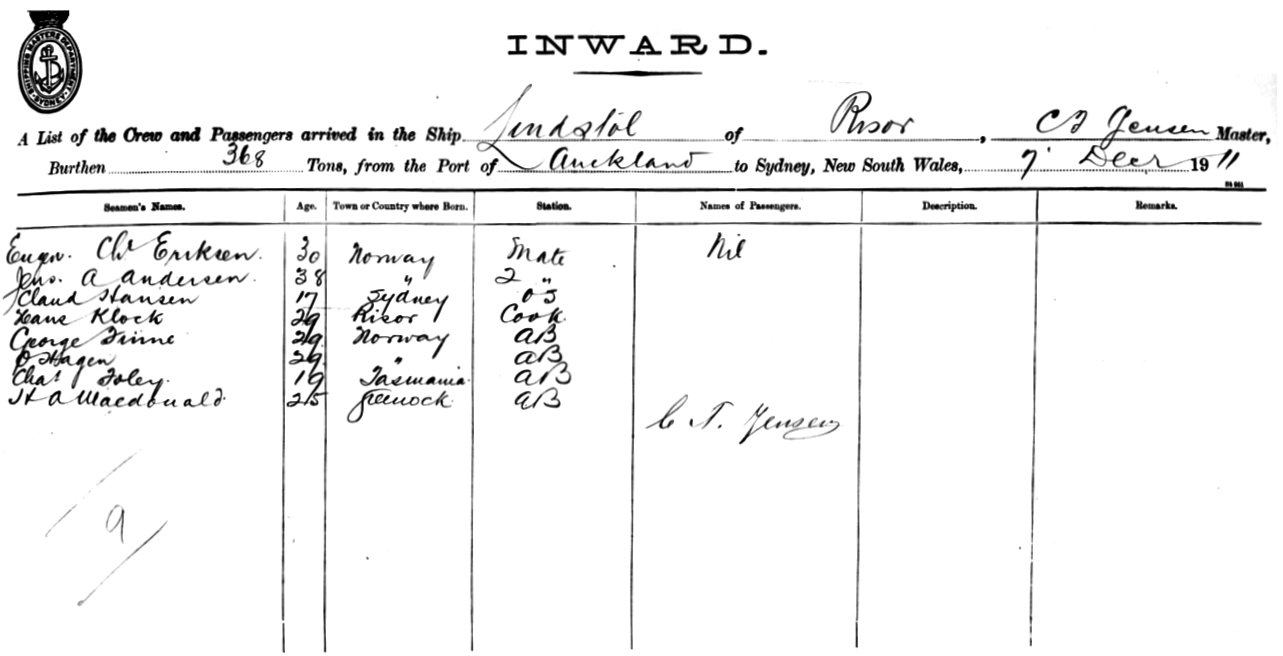 SHIPPING MASTERS DEPARTMENT SYDNEY
INWARD.
A List of the Crew and Passengers arrived in the Ship Lindstöl of Risor, C T Jensen Master,
Burthen 368 Tons, from the Port of Auckland to Sydney, New South Wales, 7 Decr 1911
Seamen's Names. Age. Town or Country where Born. Station. Names of Passengers. Description. Remarks.
Eugn. Chr Eriksen. 30 Norway Mate Nil
Jens. A Andersen. 38 " 2 "
Claud Hansen 17 Sydney OS
Hans Klock 29 Risor Cook
George Finne 29 Norway AB
O Hagen 29 " AB
Chas Foley. 19 Tasmania AB
H A Macdonald 25 Greenock AB
C T. Jensen
9